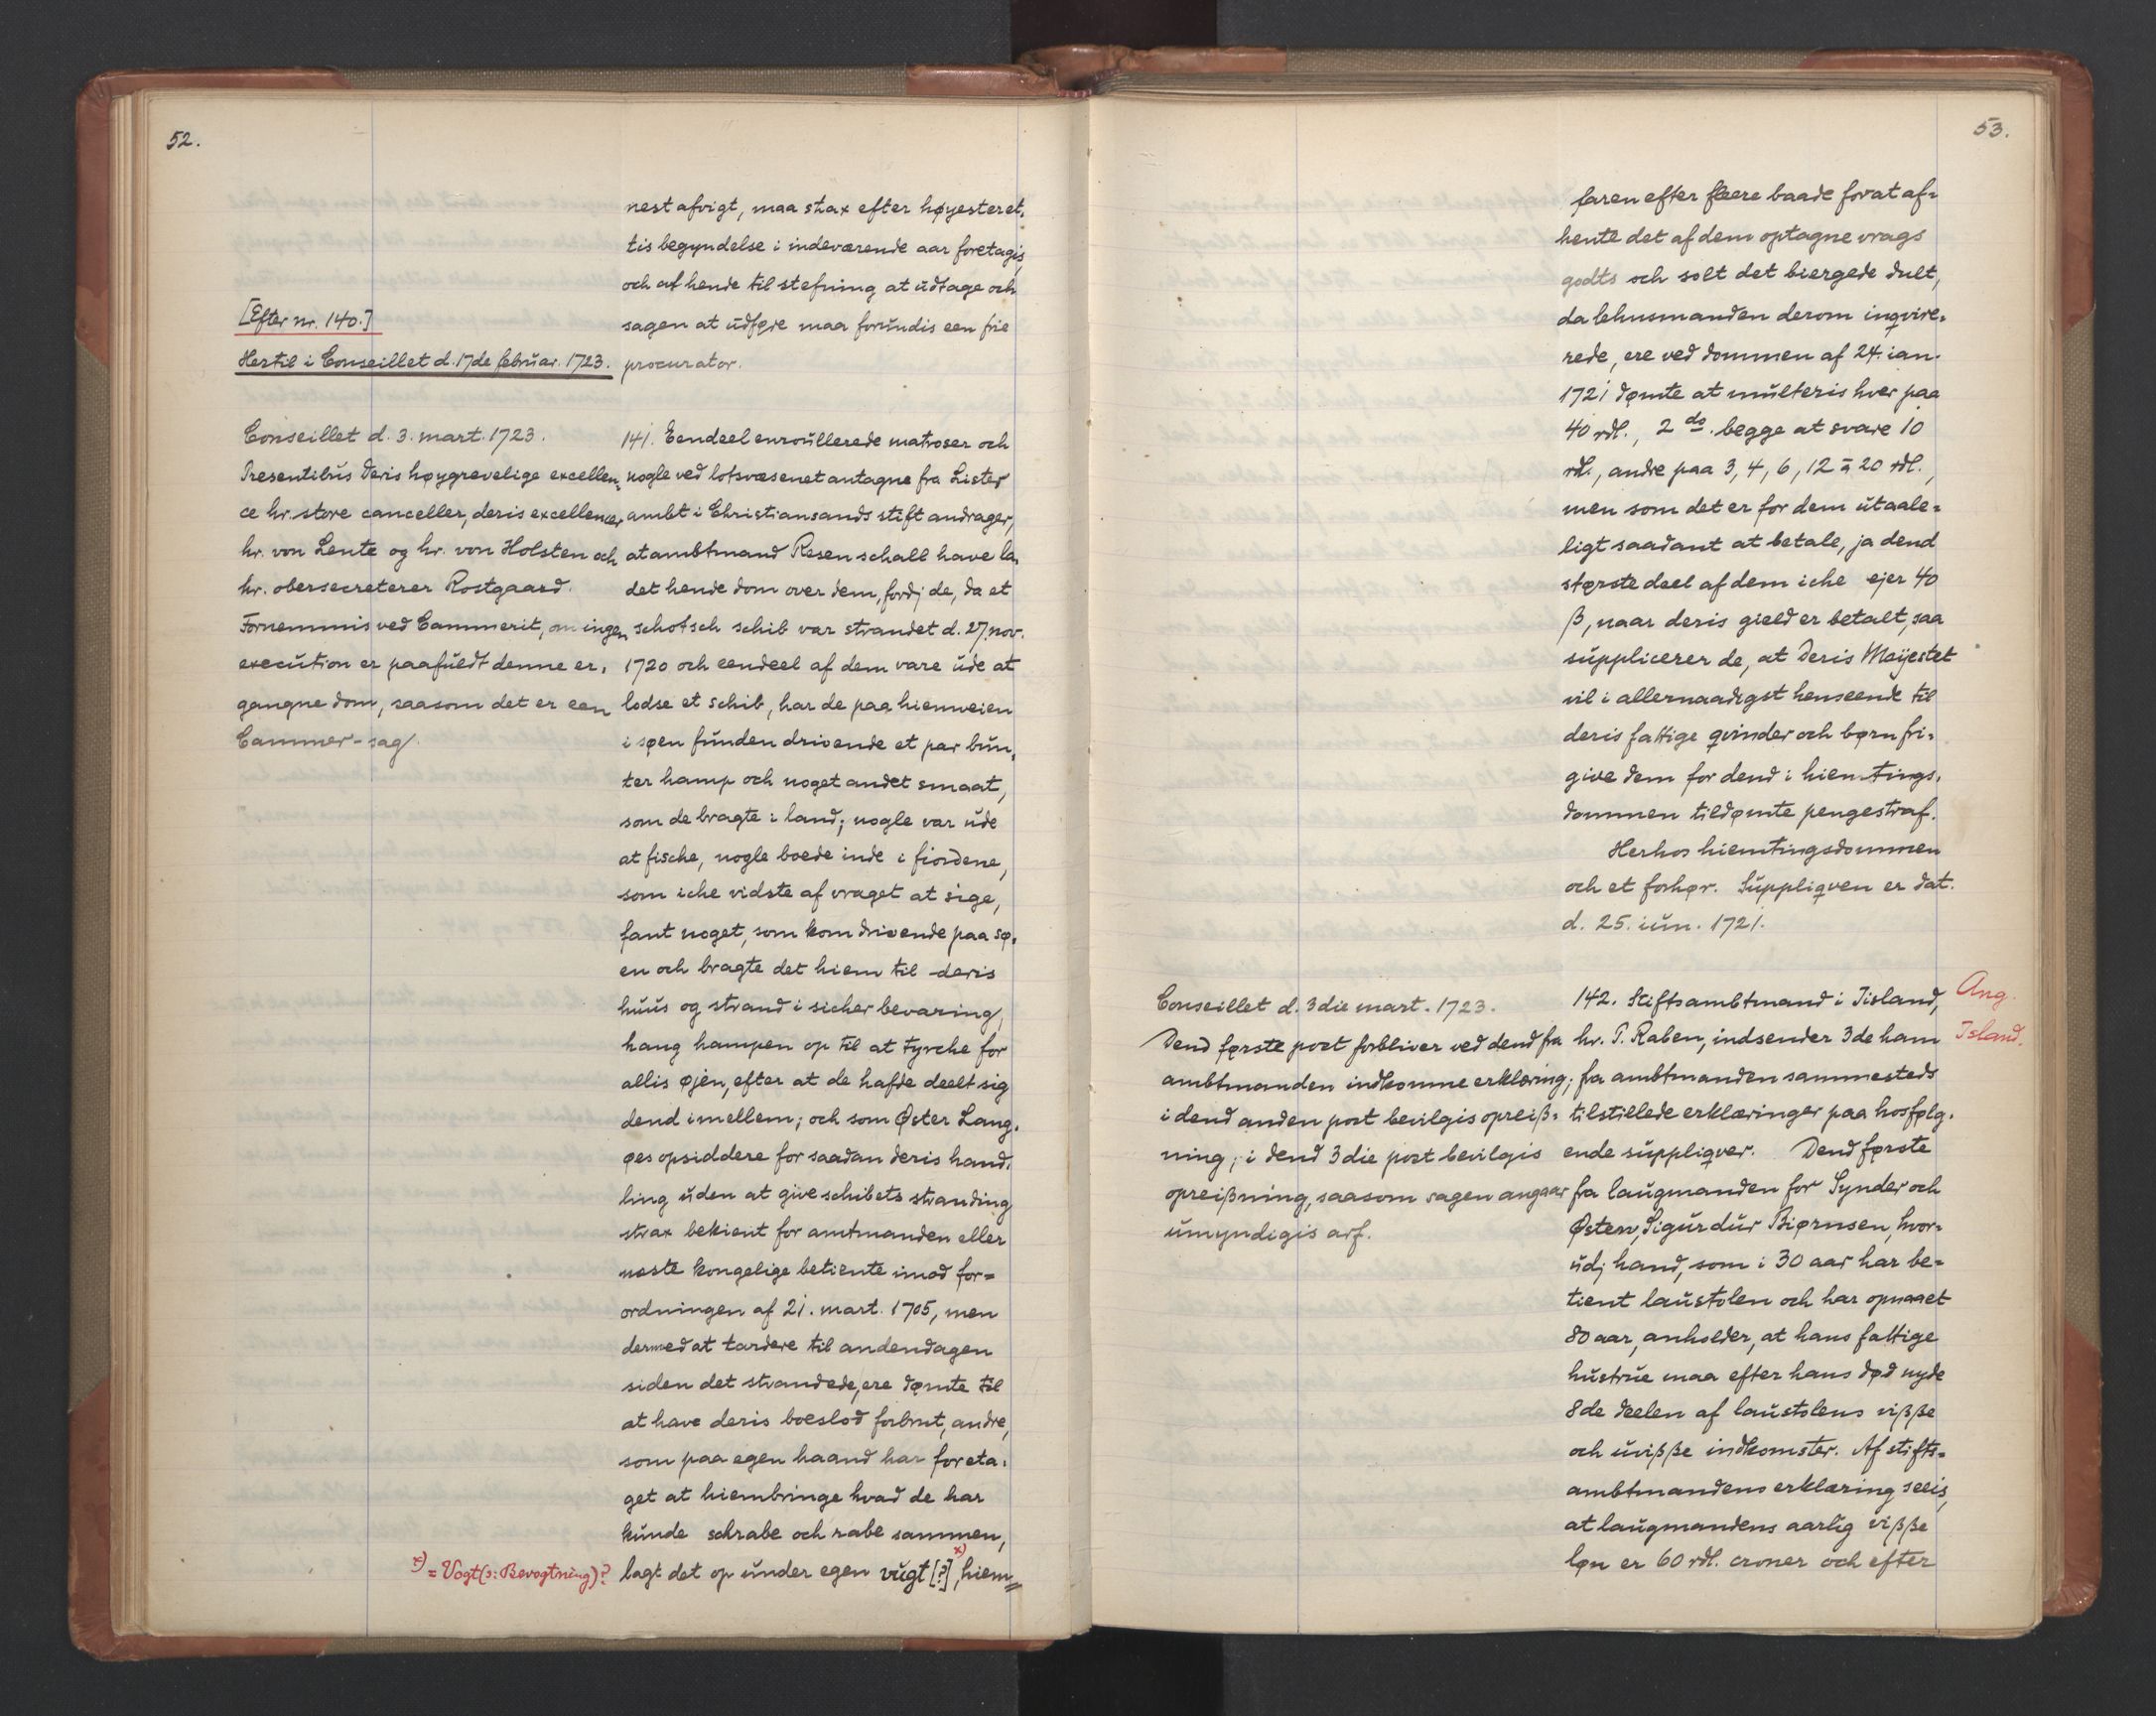 52.
[Efter nr. 140.]
Hertil i Conseillet d. 17de februar. 1723.
Conseillet d. 3. mart. 1723.
Presentibus deris høygrevelige excellen=
ce hr. store canceller, deris excellencer
hr. von Lente og hr. von Holsten och
hr. obersecreterer Rostgaard.
Fornemmis ved Cammerit, om ingen
execution er paafuldt denne er=
gangne dom, saasom det er een
Cammer-sag.
nest afvigt, maa strax efter høyesteret=
tis begyndelse i indeværende aar foretagis,
och at hende til stefning at udtage och
sagen at udføre maa forundis een frie
procurator.
141. Eendeel enroullerede matroser och
nogle ved lotsvæsenet antagne fra Lister
ambt i Christiansands stift andrager,
at ambtmand Resen schall have la=
det hende dom over dem, fordj de, da et
schotsch schib var strandet d. 27. nov.
1720 och eendeel af dem vare ude at
lodse et schib, har de paa hiemveien
i søen funden drivende et par bun=
ter hamp och noget andet smaat,
som de bragte i land; nogle var ude
at fische, nogle boede inde i fiordene,
som iche vidste af vraget at sige,
fant noget, som kom drivende paa sø=
en och bragte det hiem til deris
huus og strand i sicher bevaring,
hang hampen op til at tyrche for
allis øjen, efter at de hafde deelt sig
dend imellem; och som Øster Lang=
øes opsiddere for saadan deris hand=
ling uden at give schibets stranding
strax bekient for amtmanden eller
neste kongelige betiente imod for=
ordningen af 21. mart. 1705, men
dermed at tardere til andendagen
siden det strandede, ere dømte til
at have deris boeslod forbrut, andre,
som paa egen haand har foreta=
get at hiembringe hvad de har
kunde schrabe och rabe sammen,
lagt det op under egen vugt [?] x), hiem=
x) = Vogt (ɔ: Bevogtning)?
53.
faren efter fleere baade for at af=
hente det af dem optagne vrags
godts och solt det biergede dult,
da lehnsmanden derom inqvire=
rede, ere ved dommen af 24. ian.
1721 dømte at mulcteris hver paa
40 rdl., 2 do. begge at svare 10
rdl., andre paa 3, 4, 6, 12 à 20 rdl.,
men som det er for dem utaale=
ligt saadant at betale, ja dend
største deel af dem iche ejer 40
β, naar deris gield er betalt, saa
supplicerer de, at Deris Mayestet
vil i allernaadigst henseende til
deris fattige qvinder och børn fri=
give dem for dend i hiemtings=
dommen tildømte pengestraf.
Herhos hiemtingsdommen
och et forhør. Suppliqven er dat.
d. 25. iun. 1721.
Conseillet d. 3die mart. 1723.
Dend første post forbliver ved dend fra
ambtmanden indkomne erklæring;
i dend anden post bevilgis opreiß=
ning; i dend 3die post bevilgis
opreißning, saasom sagen angaar
umyndigis arf.
142. Stiftsambtmand i Iisland,
hr. P. Raben, indsender 3de ham
fra ambtmanden sammesteds
tilstillede erklæringer paa hosfølg=
ende suppliqver. Dend første
fra laugmanden for Synder och
Østen, Sigurdur Biørnsen, hvor=
udj hand, som i 30 aar har be=
tient laustolen och har opnaaet
80 aar, anholder, at hans fattige
hustrue maa efter hans død nyde
8de deelen af laustolens vißße
och uvißße indkomster. Af stifts=
ambtmandens erklæring seeis,
at laugmandens aarlig vißße
løn er 60 rdl. croner och efter
Ang.
Island.